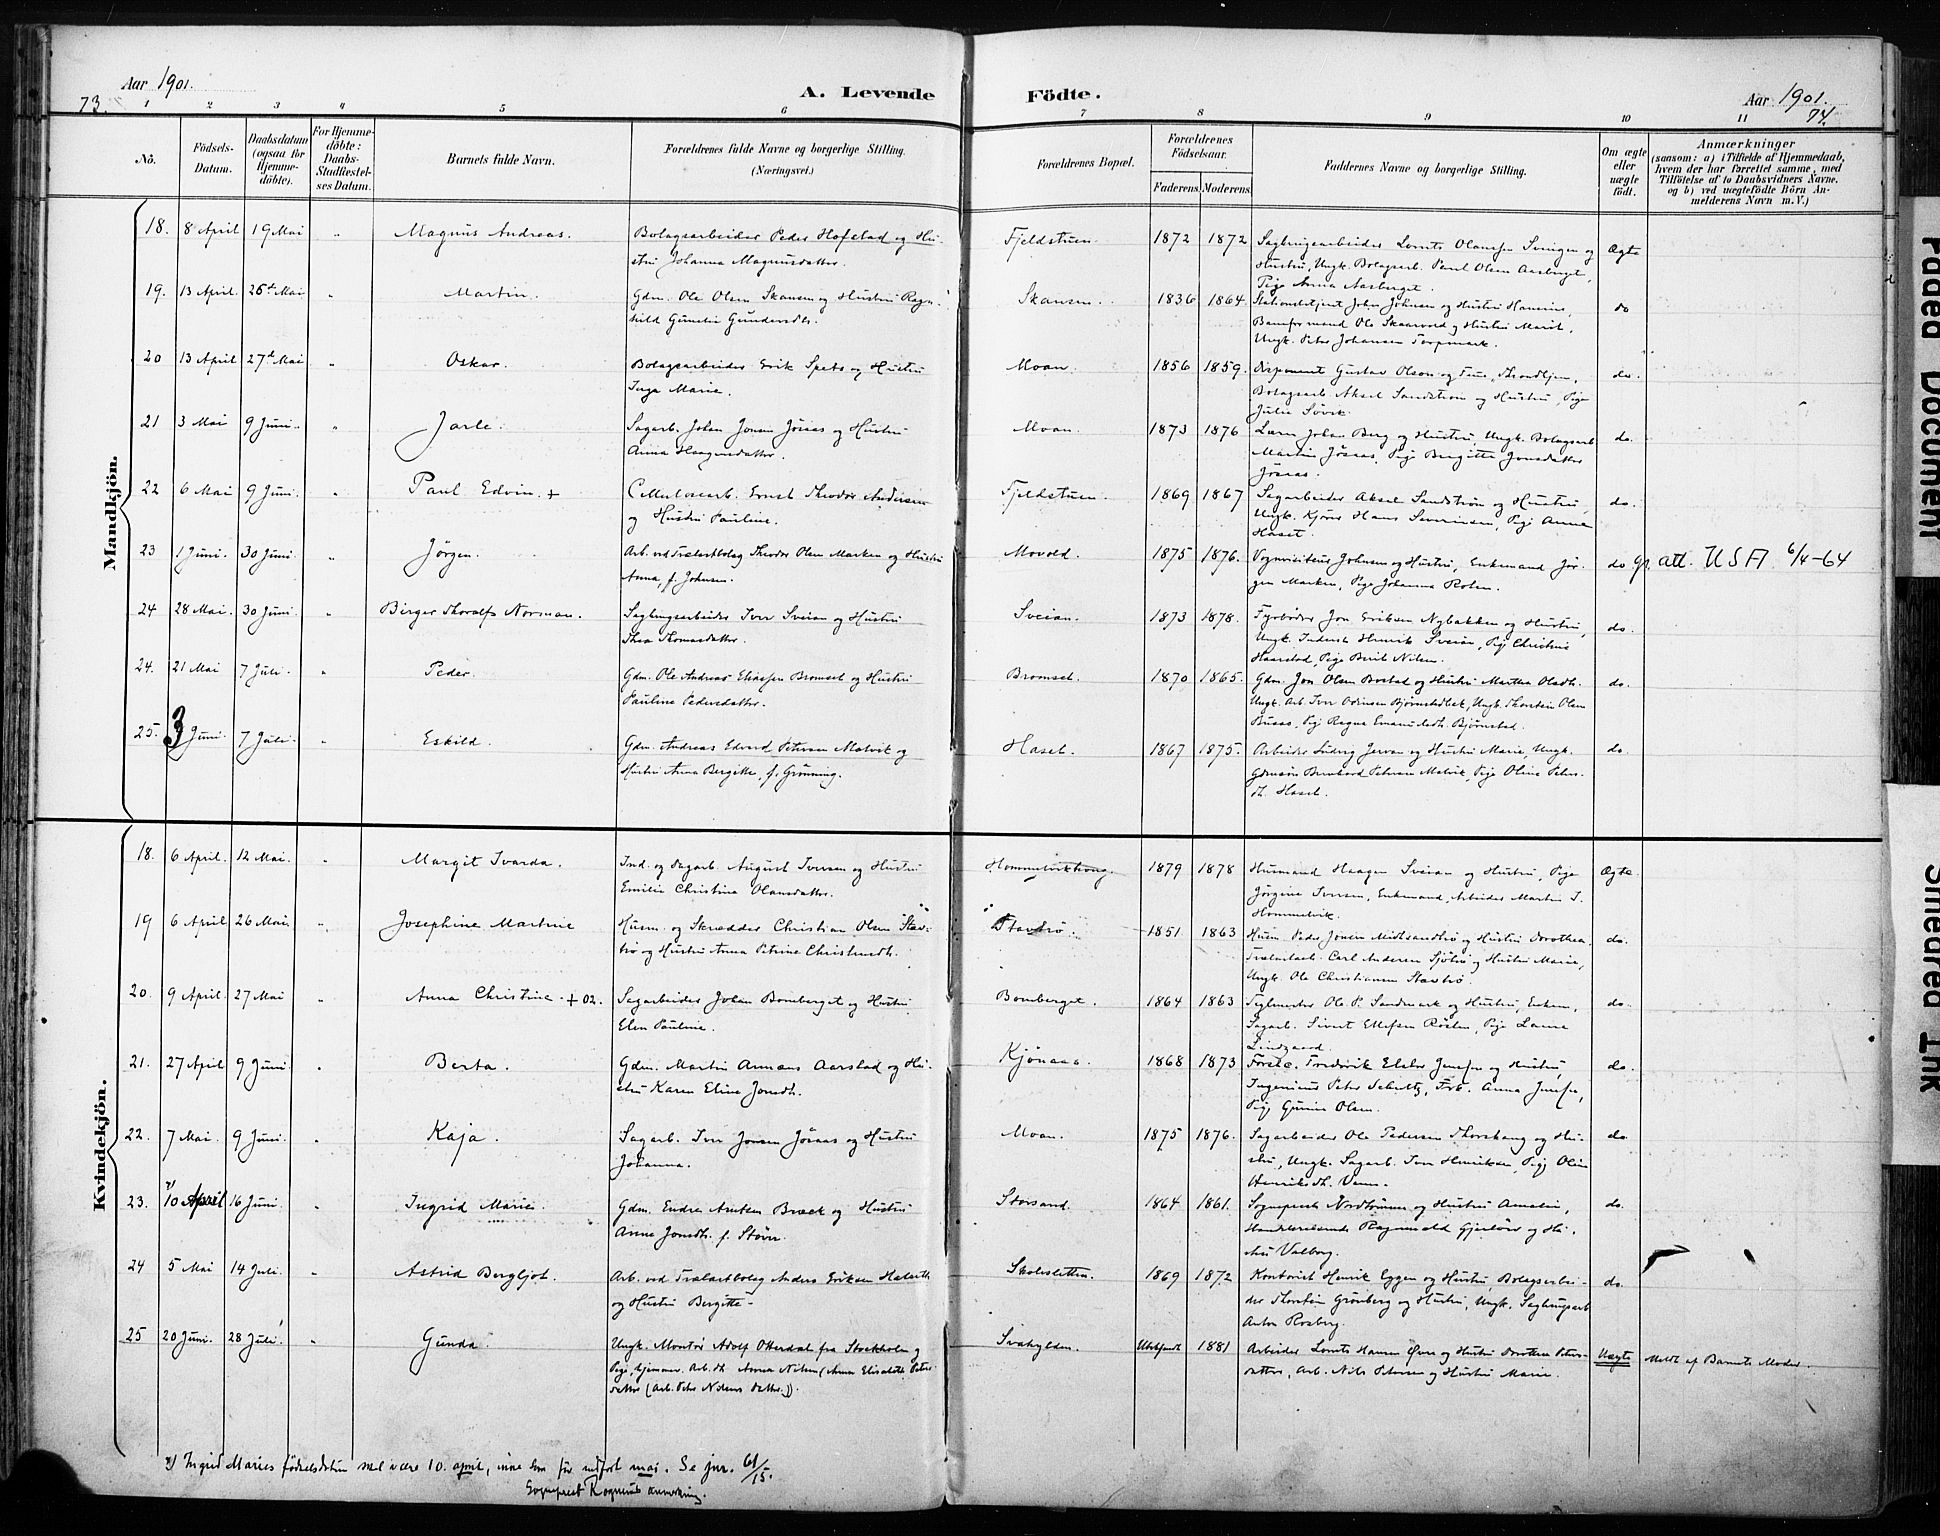 Aar 1901.
73.
A. Levende
Födte.
Aar 1901.
74.
1 2 3 4 5 6 7 8 9 10 11
No.
Födsels-
Datum.
Daabsdatum
(ogsaa for
Hjemme-
döbte).
For Hjemme-
döbte:
Daabs-
Stadfæstel-
ses Datum.
Barnets fulde Navn.
Forældrenes fulde Navne og borgerlige Stilling.
(Næringsvei.)
Forældrenes Bopæl.
Forældrenes
Födselsaar.
Faderens.
Moderens.
Faddernes Navne og borgerlige Stilling.
Om ægte
eller
uægte
födt.
Anmærkninger
(saasom: a) i Tilfælde af Hjemmedaab,
hvem der har forrettet samme, med
Tilföielse af to Daabsvidners Navne,
og b) ved uægtefödte Börn An-
melderens Navn m.V.)
Mandkjön.
18. 8 April 19 Mai " Magnus Andreas.
Bolagsarbeider Peder Hofstad og Hu-
stru Johanna Magnusdatter.
Fjeldstuen. 1872 1872
Sagbrugsarbeider Lornts Olausen Svingen og
Hustru, Ungk. Bolagsarb. Paul Olsen Aasberget,
Pige Anna Aasberget.
Ægte
19. 13 April 26de Mai " Martin.
Gdm. Ole Olsen Skansen og Hustru Ragn-
hild Gunetie Gundersdtr.
Skansen. 1836 1864
Stationsbetjent John Johnsen og Hustru Hansine,
Baneformand Ole Skaarvold og Hustru Marit,
Ungk. Peter Johansen Torpmark.
do
20 13 April 27de Mai " Oskar.
Bolagsarbeider Erik Spets og Hustru
Inga Marie.
Moan. 1856 1859.
Disponent Gustav Olson og Frue, Throndhjem,
Bolagsarb. Aksel Sandström og Hustru, Pige
Julie Sövik.
do.
21 3 Mai 9 Juni. " Jarle.
Sagarb. Johan Jonsen Jösaas og Hustru
Anna Haagensdatter.
Moan. 1873 1876
Lærer Johan Berg og Hustru, Ungk. Bolagsarb
Martin Jösaas, Pige Bergitte Jonsdatter
Jösaas.
do.
22 6 Mai 9 Juni. " Paul Edvin. +
Cellulosearb. Ernst Theodor Andersen
og Hustru Pauline.
Fjeldstuen. 1869 1867
Sagarbeider Aksel Sandström og Hustru,
Ungk. Kjörer Hans Severinsen, Pige Anna
Haset.
do.
23 1 Juni. 30 Juni. " Jörgen.
Arb. ved Trælastbolag Theodor Olsen Marken og Hustru
Anna, f. Johnsen.
Movold. 1875 1876.
Vognvisitør Johnsen og Hustru, Enkemand Jör-
gen Marken, Pige Johanna Rolen.
do
gr. att. USA 6/4-64
24 28 Mai. 30 Juni. " Birger Thoralf Norman.
Sagbrugsarbeider Iver Sveian og Hustru
Thea Thomasdatter.
Sveian. 1873 1878.
Fyrböder Jon Eriksen Nybakken og Hustru,
Ungk. Inderst Henrik Sveian, Pige Christine
Haarstad, Pige Berit Nilsen.
do.
24. 21 Mai 7 Juli. " Peder.
Gdm. Ole Andreas Eliassen Bromset og Hustru
Pauline Pedersdatter.
Bromset. 1870 1865.
Gdm. Jon Olsen Bostad og Hustru Martha Olsdtr.
Ungk. Arb. Iver Odinsen Bjørnstadlek, Ungk. Thorstein Olsen
Buaas, Pige Ragna Emanuelsdtr. Bjørnstad.
do.
25. 3 Juni. 7 Juli. " Eskild.
Gdm. Andreas Edvard Petersen Malvik og
Hustru Anna Bergitte, f. Grönning.
Haset. 1867 1875.
Arbeider Ludvig Jervan og Hustru Marie, Ungk.
Gdmssön Bernhard Petersen Malvik, Pige Oline Peters-
dt. Haset.
do.
Kvindekjön.
18. 6 April. 12 Mai. " Margit Ivarda.
Ind. og Sagarb. August Iversen og Hustru
Emilie Christine Olausdatter.
Hommelvikhaug. 1879 1878
Husmand Haagen Sveian og Hustru, Pige
Jörgine Iversen, Enkemand, Arbeider Martin I.
Hommelvik.
Ægte
19 6 April 26 Mai. " Josephine Martine
Husm. og Skrædder Christian Olsen Stav-
trö og Hustru Anna Petrine Christensdtr.
Stavtrö. 1851 1863
Husm. Peder Jonsen Midtsandtrö og Hustru Dorothea,
Trælastarb. Carl Andersen Sjötrö og Hustru Marie,
Ungk. Ole Christiansen Stavtrö.
do.
20. 9 April. 27 Mai " Anna Christine. + 02.
Sagarbeider Johan Bomberget og Hustru
Elen Pauline.
Bomberget. 1864 1863
Teglmester Ole P. Sandmark og Hustru, Enkem.
Sagarb. Sivert Ellefsen Rösten, Pige Laura
Lindgaard.
do.
21. 27 April 9 Juni " Berta.
Gdm. Martin Arntsen Aarstad og Hu-
stru Karen Eline Jonsdtr.
Kjönaas. 1868 1873
Forstc. Fredrik Elster Jensen og Hustru,
Ingeniør Peter Schultz, Frk. Anna Jensen,
Pige Gurine Olsen.
do.
22. 7 Mai. 9 Juni. " Kaja.
Sagarb. Iver Jonsen Jösaas og Hustru
Johanna.
Moan. 1875 1876.
Sagarbeider Ole Pedersen Thorshaug og Hu-
stru, Ungk. Sagarb. Iver Henriksen, Pige Oline
Henriksdt. Venn.
do.
23. x) 10 April 16 Juni. " Ingrid Marie.
Gdm. Endre Arntsen Bræk og Hustru
Anne Jonsdtr. f. Störe.
Storsand. 1864 1861.
Sogneprest Nordtömme og Hustru Amalie,
Handelsreisende Ragnvald Gjerlöw og Hu-
stru Valborg.
do.
24 5 Mai 14 Juli. " Astrid Bergljot.
Arb. ved Trælastbolag Anders Eriksen Halseth
og Hustru Bergitte.
Skolesletten. 1869 1872
Kontorist Henrik Eggen og Hustru, Bolagsarbei-
der Thorstein Grönberg og Hustru, Ungk. Sagbrugsarb
Anton Rosberg.
do.
25 20 Juni. 28 Juli. " Gunda.
Ungk. Montör Adolf Otterdal fra Stockholm og
Pige, hjemmev. Arb.dtr. Anna Nilsen (Anna Elisabeth Peters-
datter (Arb. Peter Nilsens Datter.)).
Svahylden. Ubekjendt 1881
Arbeider Lornts Hansen Øvre og Hustru Dorothea Peters-
datter, Arb. Nils Petersen og Hustru Marie.
Uægte
Meldt af Barnets Moder.
x) Ingrid Maries fødselsdatum skal være 10. april, inne som før innført mai. Se jnr. 61/15.
Sogneprest Kognæs anmerkning.
Faded Document
Smeared Ink